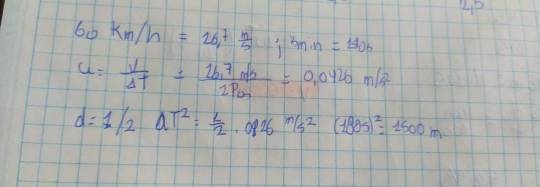 60 Km/h = 26,7 m/s ; 3min = 180s
a = V/ΔT = 26,7 m/s = 0,0926 m/s²
d = 1/2 aT² = 1/2 . 0,0926 m/s² (180s)² = 1500 m